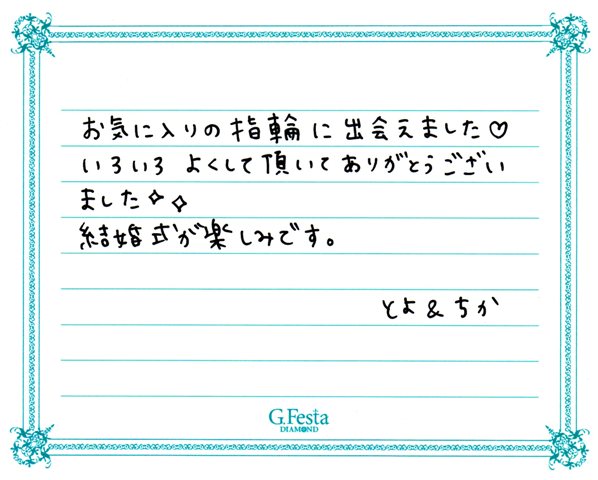 お気に入りの指輪に出会えました♡
いろいろ よくして頂いてありがとうござい
ました✧✧
結婚式が楽しみです。
とよ&ちか
G.Festa
DIAMOND